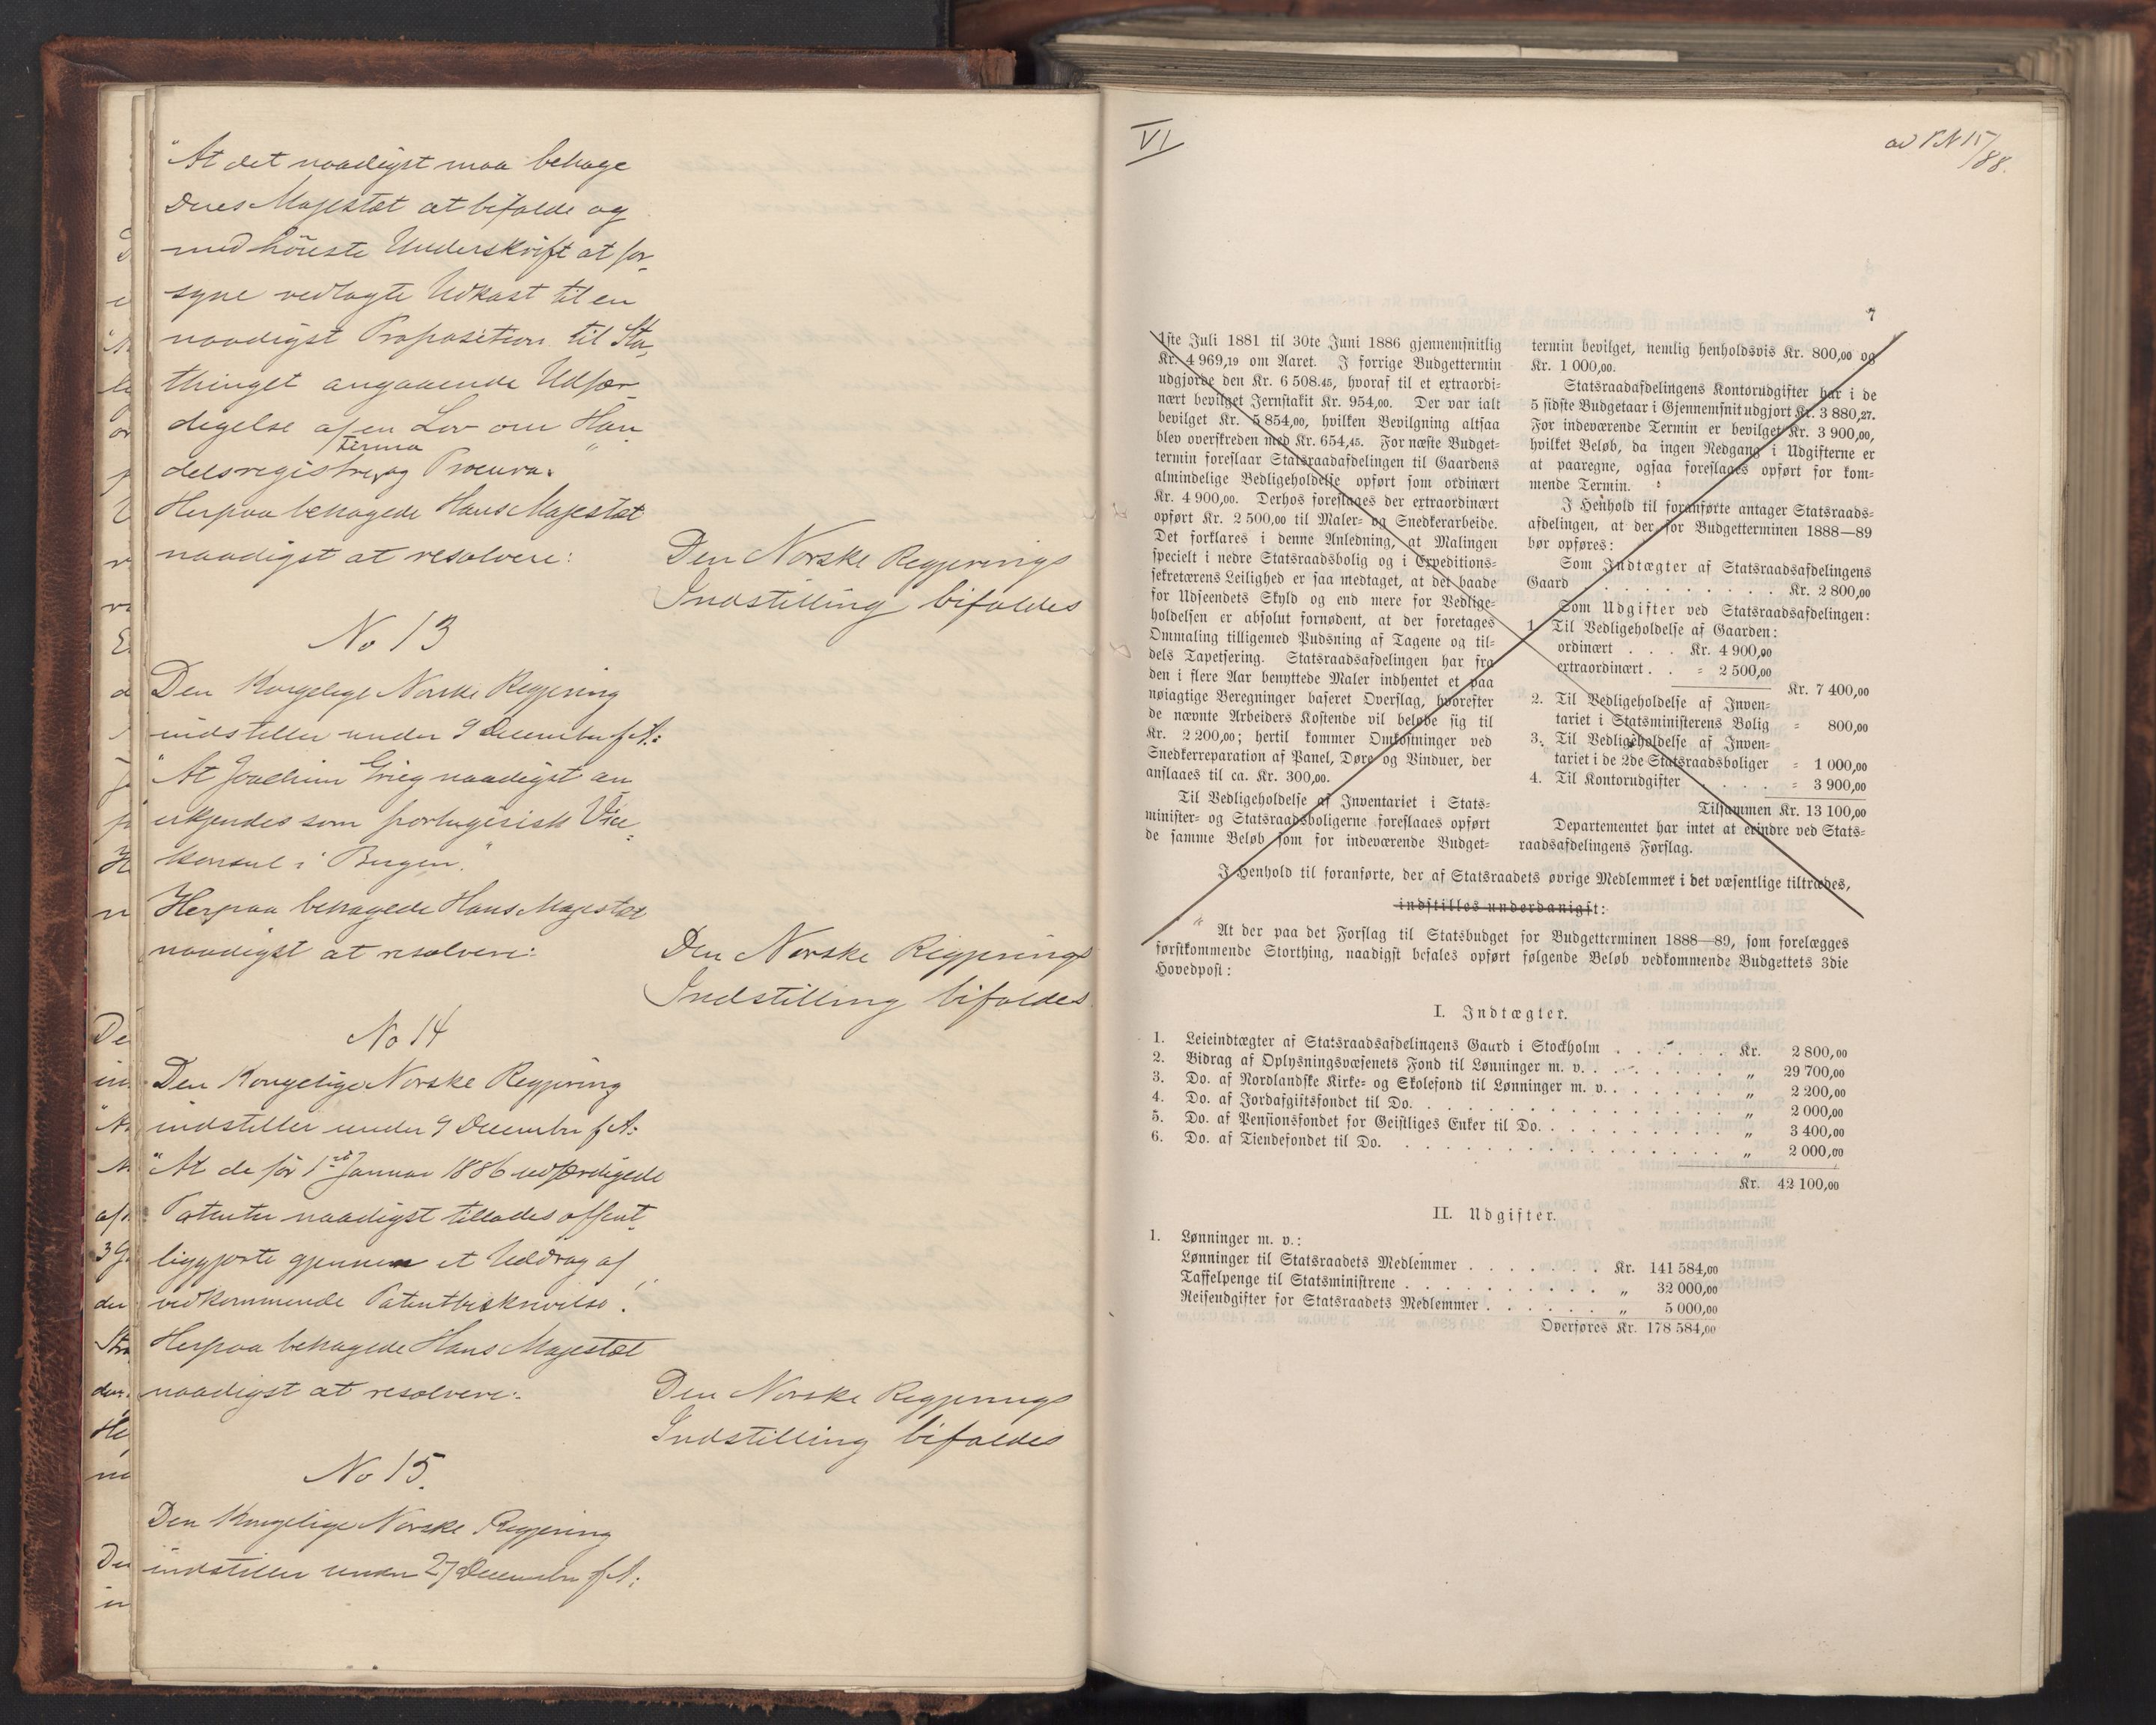 "At det naadigst maa behage
Deres Majestæt at bifalde og
med höieste Underskrift at for-
syne vedlagte Udkast til en
naadigst Proposition til Stor-
thinget angaaende Udfær-
digelse af en Lov om Han-
Firma
delsregistre, og Procura."
Herpaa behagede Hans Majestæt
naadigst at resolvere:
Den Norske Regjerings
Indstilling bifaldes
No 13
Den Kongelige Norske Regjering
indstiller under 9 December f.A.:
"At Joachim Grieg naadigst an-
erkjendes som portugisisk Vice-
konsul i Bergen."
Herpaa behagede Hans Majestæt
naadigst at resolvere:
Den Norske Regjerings
Indstilling bifaldes
No 14
Den Kongelige Norske Regjering
indstiller under 9 December f.A:
"At de för 1ste Januar 1886 udfærdigede
Patenter naadigst tillades offent-
liggjorte gjennem et Uddrag af
vedkommende Patentbeskrivelse."
Herpaa behagede Hans Majestæt
naadigst at resolvere:
Den Norske Regjerings
Indstilling bifaldes
No 15.
Den Kongelige Norske Regjering
indstiller under 27 December f.A:
VI
ad P N 15/88.
7
1ste Juli 1881 til 30te Juni 1886 gjennemsnitlig
Kr. 4 969,19 om Aaret. I forrige Budgettermin
udgjorde den Kr. 6 508.45, hvoraf til et extraordi-
nært bevilget Jernstakit Kr. 954,00. Der var ialt
bevilget Kr. 5 854,00, hvilken Bevilgning altsaa
blev overskreden med Kr. 654,45. For næste Budget-
termin foreslaar Statsraadafdelingen til Gaardens
almindelige Vedligeholdelse opført som ordinært
Kr. 4 900,00. Derhos foreslages der extraordinært
opført Kr. 2 500,00 til Maler- og Snedkerarbeide.
Det forklares i denne Anledning, at Malingen
specielt i nedre Statsraadsbolig og i Expeditions-
sekretærens Leilighed er saa medtaget, at det baade
for Udseendets Skyld og end mere for Vedlige-
holdelsen er absolut fornødent, at der foretages
Ommaling tilligemed Pudsning af Tagene og til-
dels Tapetsering. Statsraadsafdelingen har fra
den i flere Aar benyttede Maler indhentet et paa
nøiagtige Beregninger baseret Overslag, hvorefter
de nævnte Arbeiders Kostende vil beløbe sig til
Kr. 2 200,00; hertil kommer Omkostninger ved
Snedkerreparation af Panel, Døre og Vinduer, der
anslaaes til ca. Kr. 300,00.
Til Vedligeholdelse af Inventariet i Stats-
minister- og Statsraadsboligerne foreslaaes opført
de samme Beløb som for indeværende Budget-
termin bevilget, nemlig henholdsvis Kr. 800,00 og
Kr. 1 000,00.
Statsraadafdelingens Kontorudgifter har i de
5 sidste Budgetaar i Gjennemsnit udgjort Kr. 3 880,27.
For indeværende Termin er bevilget Kr. 3 900,00,
hvilket Beløb, da ingen Nedgang i Udgifterne er
at paaregne, ogsaa foreslages opført for kom-
mende Termin.
I Henhold til foranførte antager Statsraads-
afdelingen, at der for Budgetterminen 1888—89
bør opføres:
Som Indtægter af Statsraadsafdelingens
Gaard . . . . . . . . . . Kr. 2 800,00
Som Udgifter ved Statsraadsafdelingen:
1. Til Vedligeholdelse af Gaarden:
ordinært . . . Kr. 4 900,00
extraordinært . . = 2 500,00
Kr. 7 400,00
2. Til Vedligeholdelse af Inven-
tariet i Statsministerens Bolig = 800,00
3. Til Vedligeholdelse af Inven-
tariet i de 2de Statsraadsboliger = 1 000,00
4. Til Kontorudgifter . . . . = 3 900,00
Tilsammen Kr. 13 100,00
Departementet har intet at erindre ved Stats-
raadsafdelingens Forslag.
I Henhold til foranførte, der af Statsraadets øvrige Medlemmer i det væsentlige tiltrædes,
indstilles underdanigst:
" At der paa det Forslag til Statsbudget for Budgetterminen 1888—89, som forelægges
førstkommende Storthing, naadigst befales opført følgende Beløb vedkommende Budgettets 3die
Hovedpost:
I. Indtægter.
1. Leieindtægter af Statsraadsafdelingens Gaard i Stockholm . . . . . . Kr. 2 800,00
2. Bidrag af Oplysningsvæsenets Fond til Lønninger m. v. . . . . . . . „ 29 700,00
3. Do. af Nordlandske Kirke- og Skolefond til Lønninger m. v. . . . . . . „ 2 200,00
4. Do. af Jordafgiftsfondet til Do. . . . . . . . . . . . . . . . „ 2 000,00
5. Do. af Pensionsfondet for Geistliges Enker til Do. . . . . . . . . . „ 3 400,00
6. Do. af Tiendefondet til Do. . . . . . . . . . . . . . . . . „ 2 000,00
Kr. 42 100,00
II. Udgifter.
1. Lønninger m. v.:
Lønninger til Statsraadets Medlemmer . . . . . . . Kr. 141 584,00
Taffelpenge til Statsministrene . . . . . . . . . . „ 32 000,00
Reiseudgifter for Statsraadets Medlemmer . . . . . . „ 5 000,00
Overføres Kr. 178 584,00